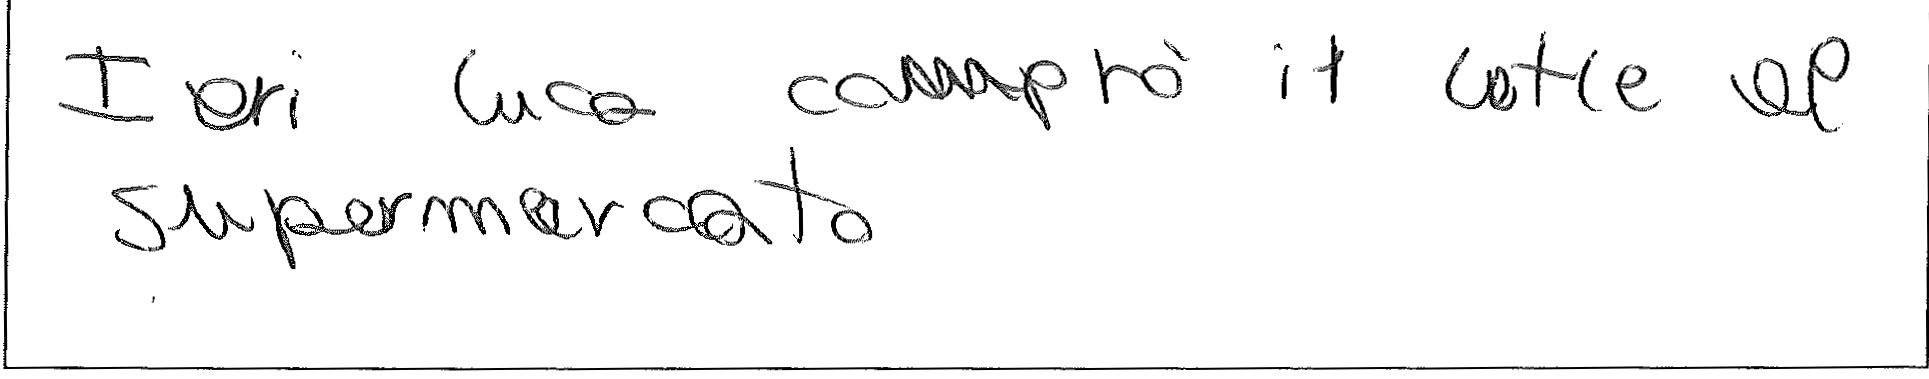 Ieri luca comprò it latte al
supermercato